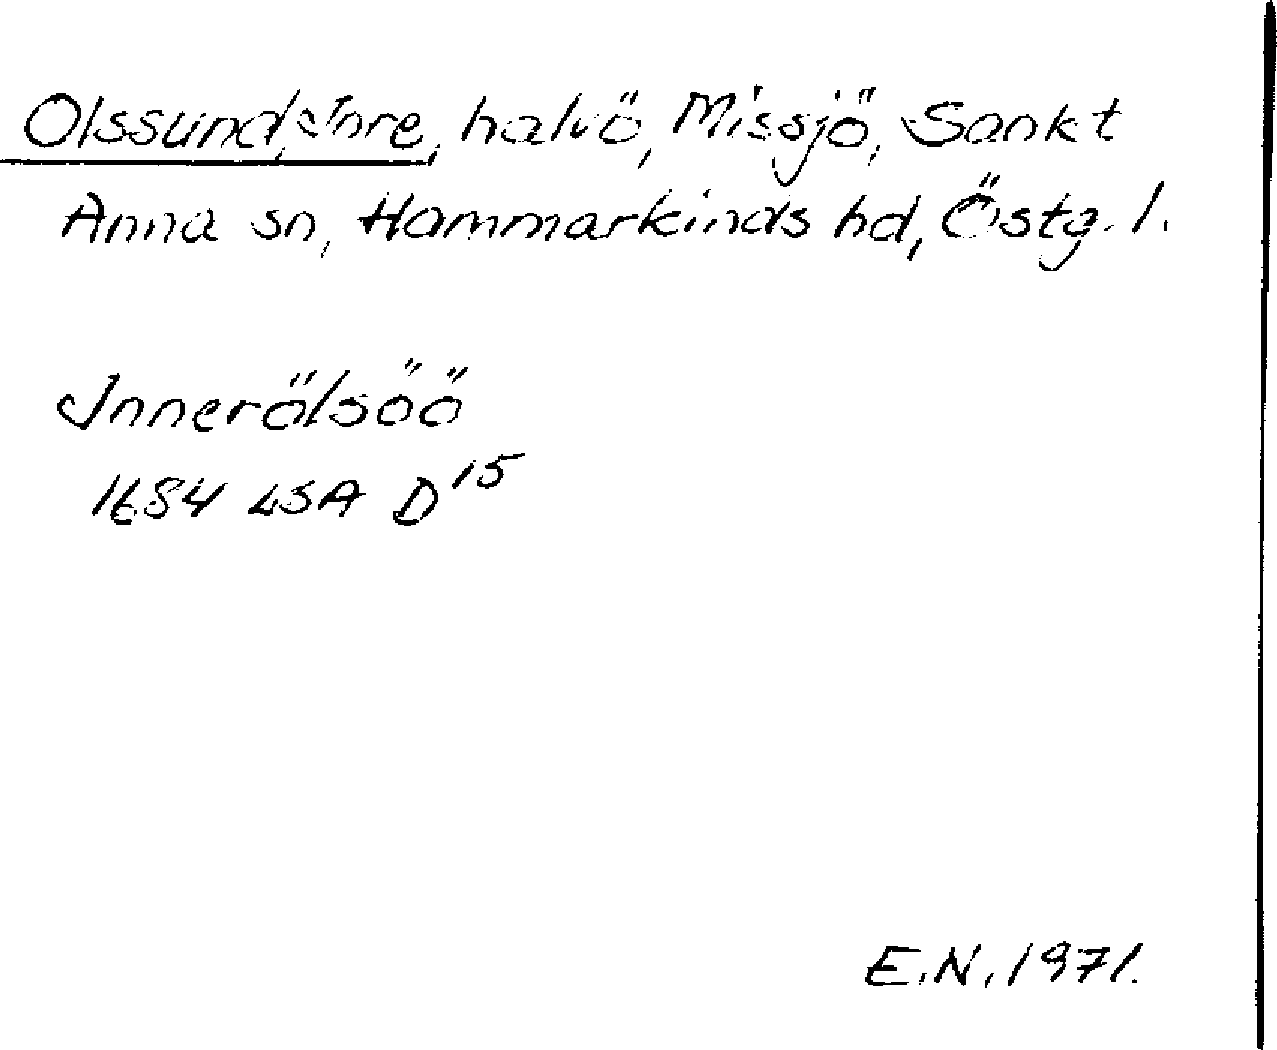 Olssund, Inre, halvö, Missjö, Sankt
Anna sn, Hammarkinds hd, Östg. l.
Innerölsöö
1684 LSA D15
E.N. 1971.